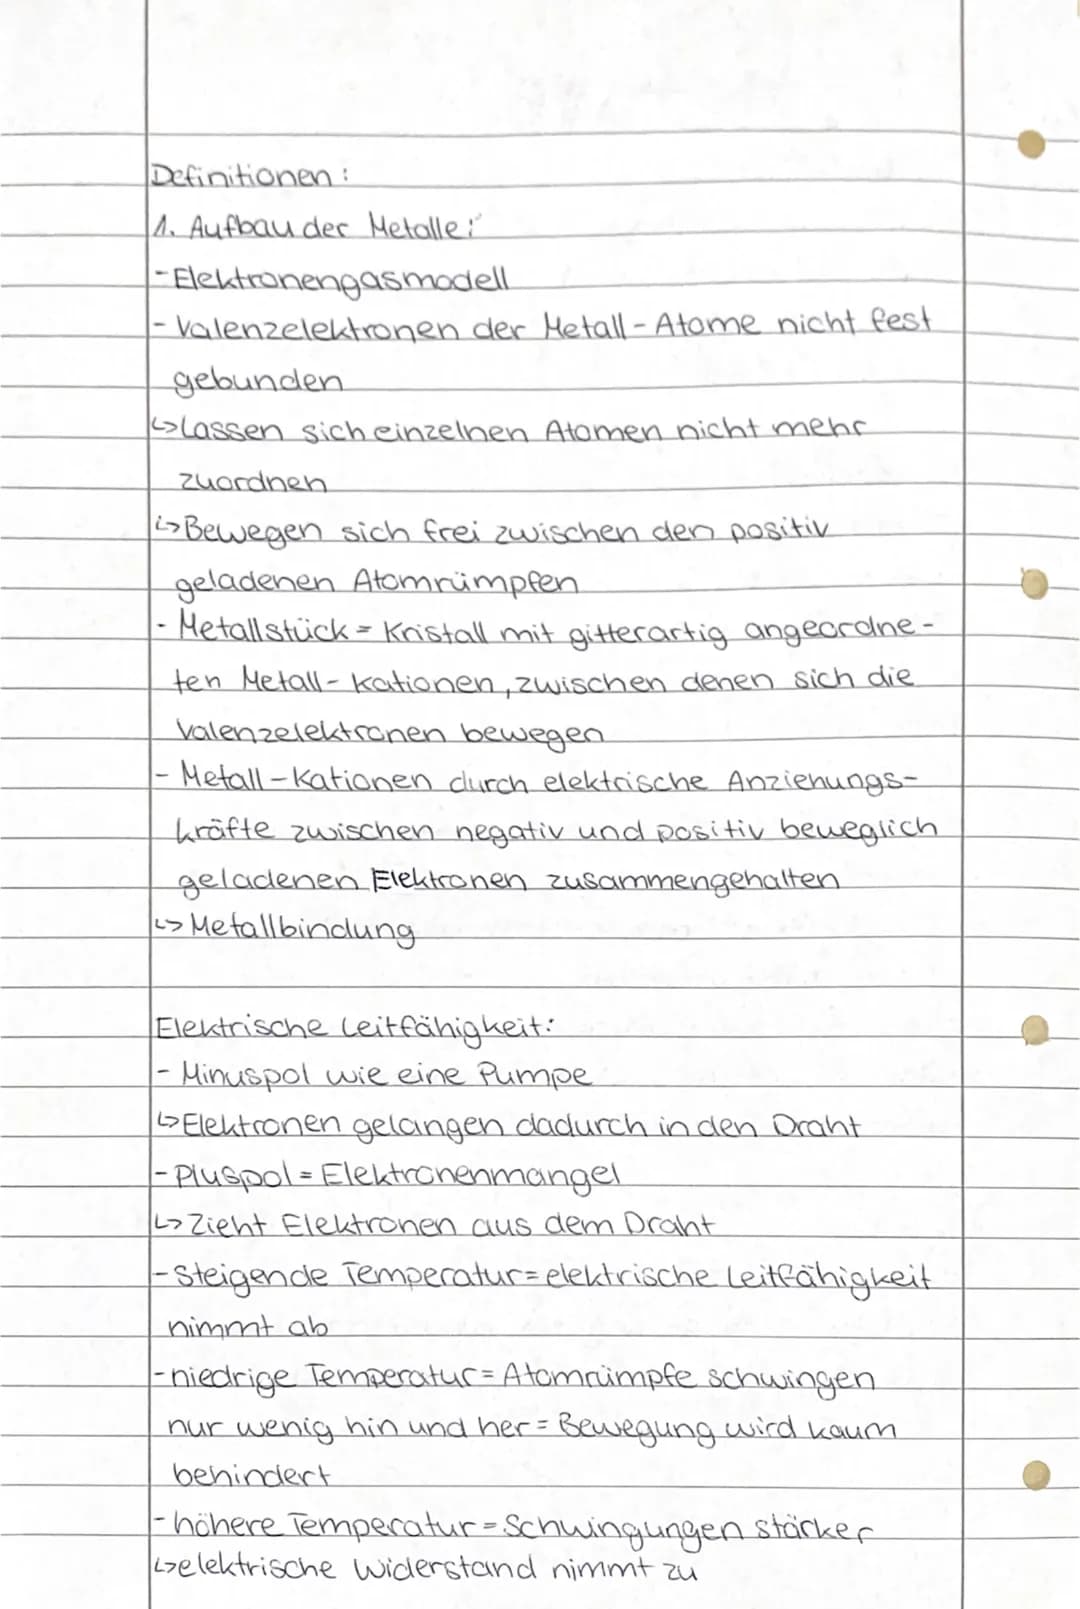 Definitionen:
1. Aufbau der Metalle:
- Elektronengasmodell
- Valenzelektronen der Metall-Atome nicht fest
gebunden
↳ Lassen sich einzelnen Atomen nicht mehr
zuordnen
↳ Bewegen sich frei zwischen den positiv
geladenen Atomrümpfen
- Metallstück = Kristall mit gitterartig angeordne-
ten Metall-Kationen, zwischen denen sich die
Valenzelektronen bewegen
- Metall-Kationen durch elektrische Anziehungs-
kräfte zwischen negativ und positiv beweglich
geladenen Elektronen zusammengehalten
↳ Metallbindung
Elektrische Leitfähigkeit:
- Minuspol wie eine Pumpe
↳ Elektronen gelangen dadurch in den Draht
- Pluspol = Elektronenmangel
↳ Zieht Elektronen aus dem Draht
- Steigende Temperatur = elektrische Leitfähigkeit
nimmt ab
- niedrige Temperatur = Atomrümpfe schwingen
nur wenig hin und her = Bewegung wird kaum
behindert
- höhere Temperatur = Schwingungen stärker
↳ elektrische Widerstand nimmt zu